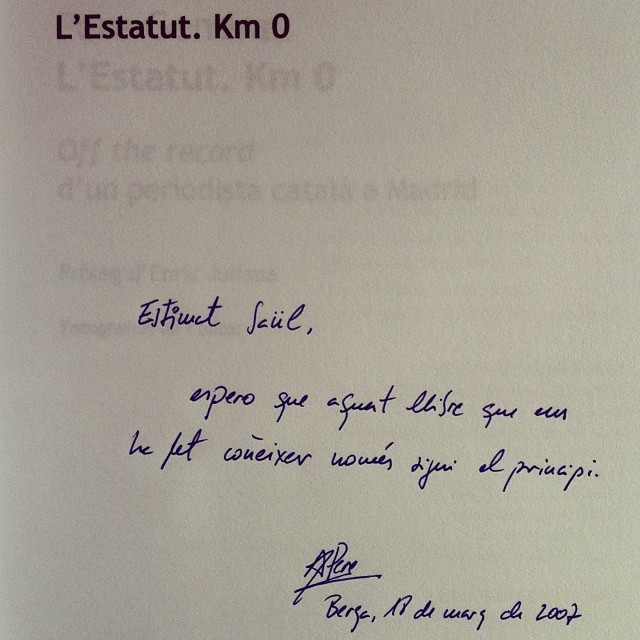 L'Estatut. Km 0
L'Estatut. Km 0
Off the record
d'un periodista català a Madrid
Pròleg d'Enric Juliana
Estimat Saül,
espero que aquest llibre que ens
ha fet conèixer només sigui el principi.
Pere
Berga, 18 de març de 2007